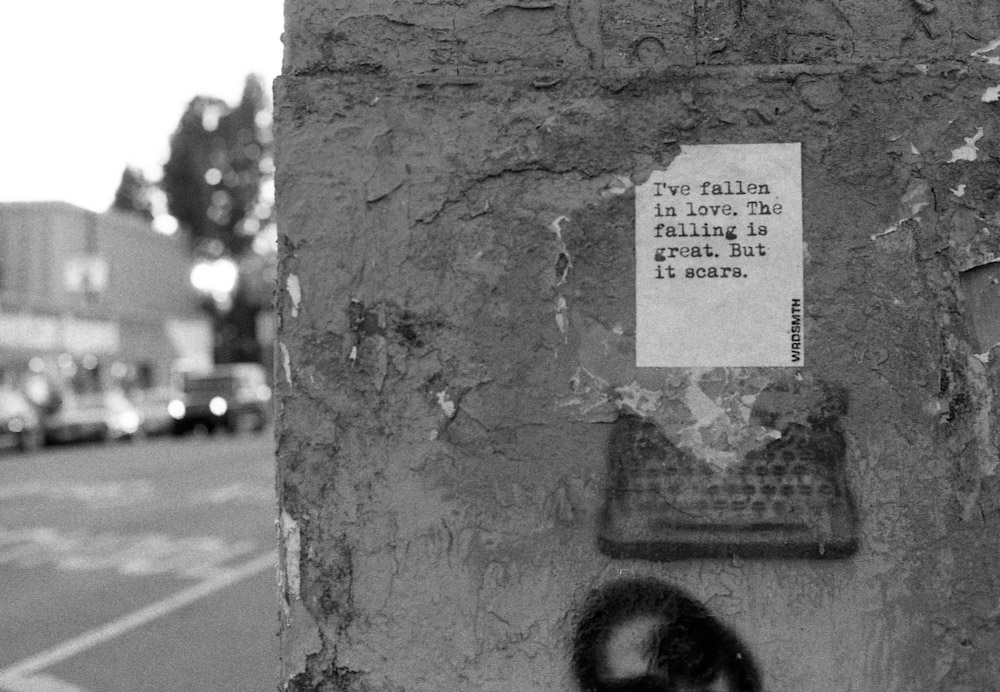 I've fallen
in love. The
falling is
great. But
it scars.
WRDSMTH